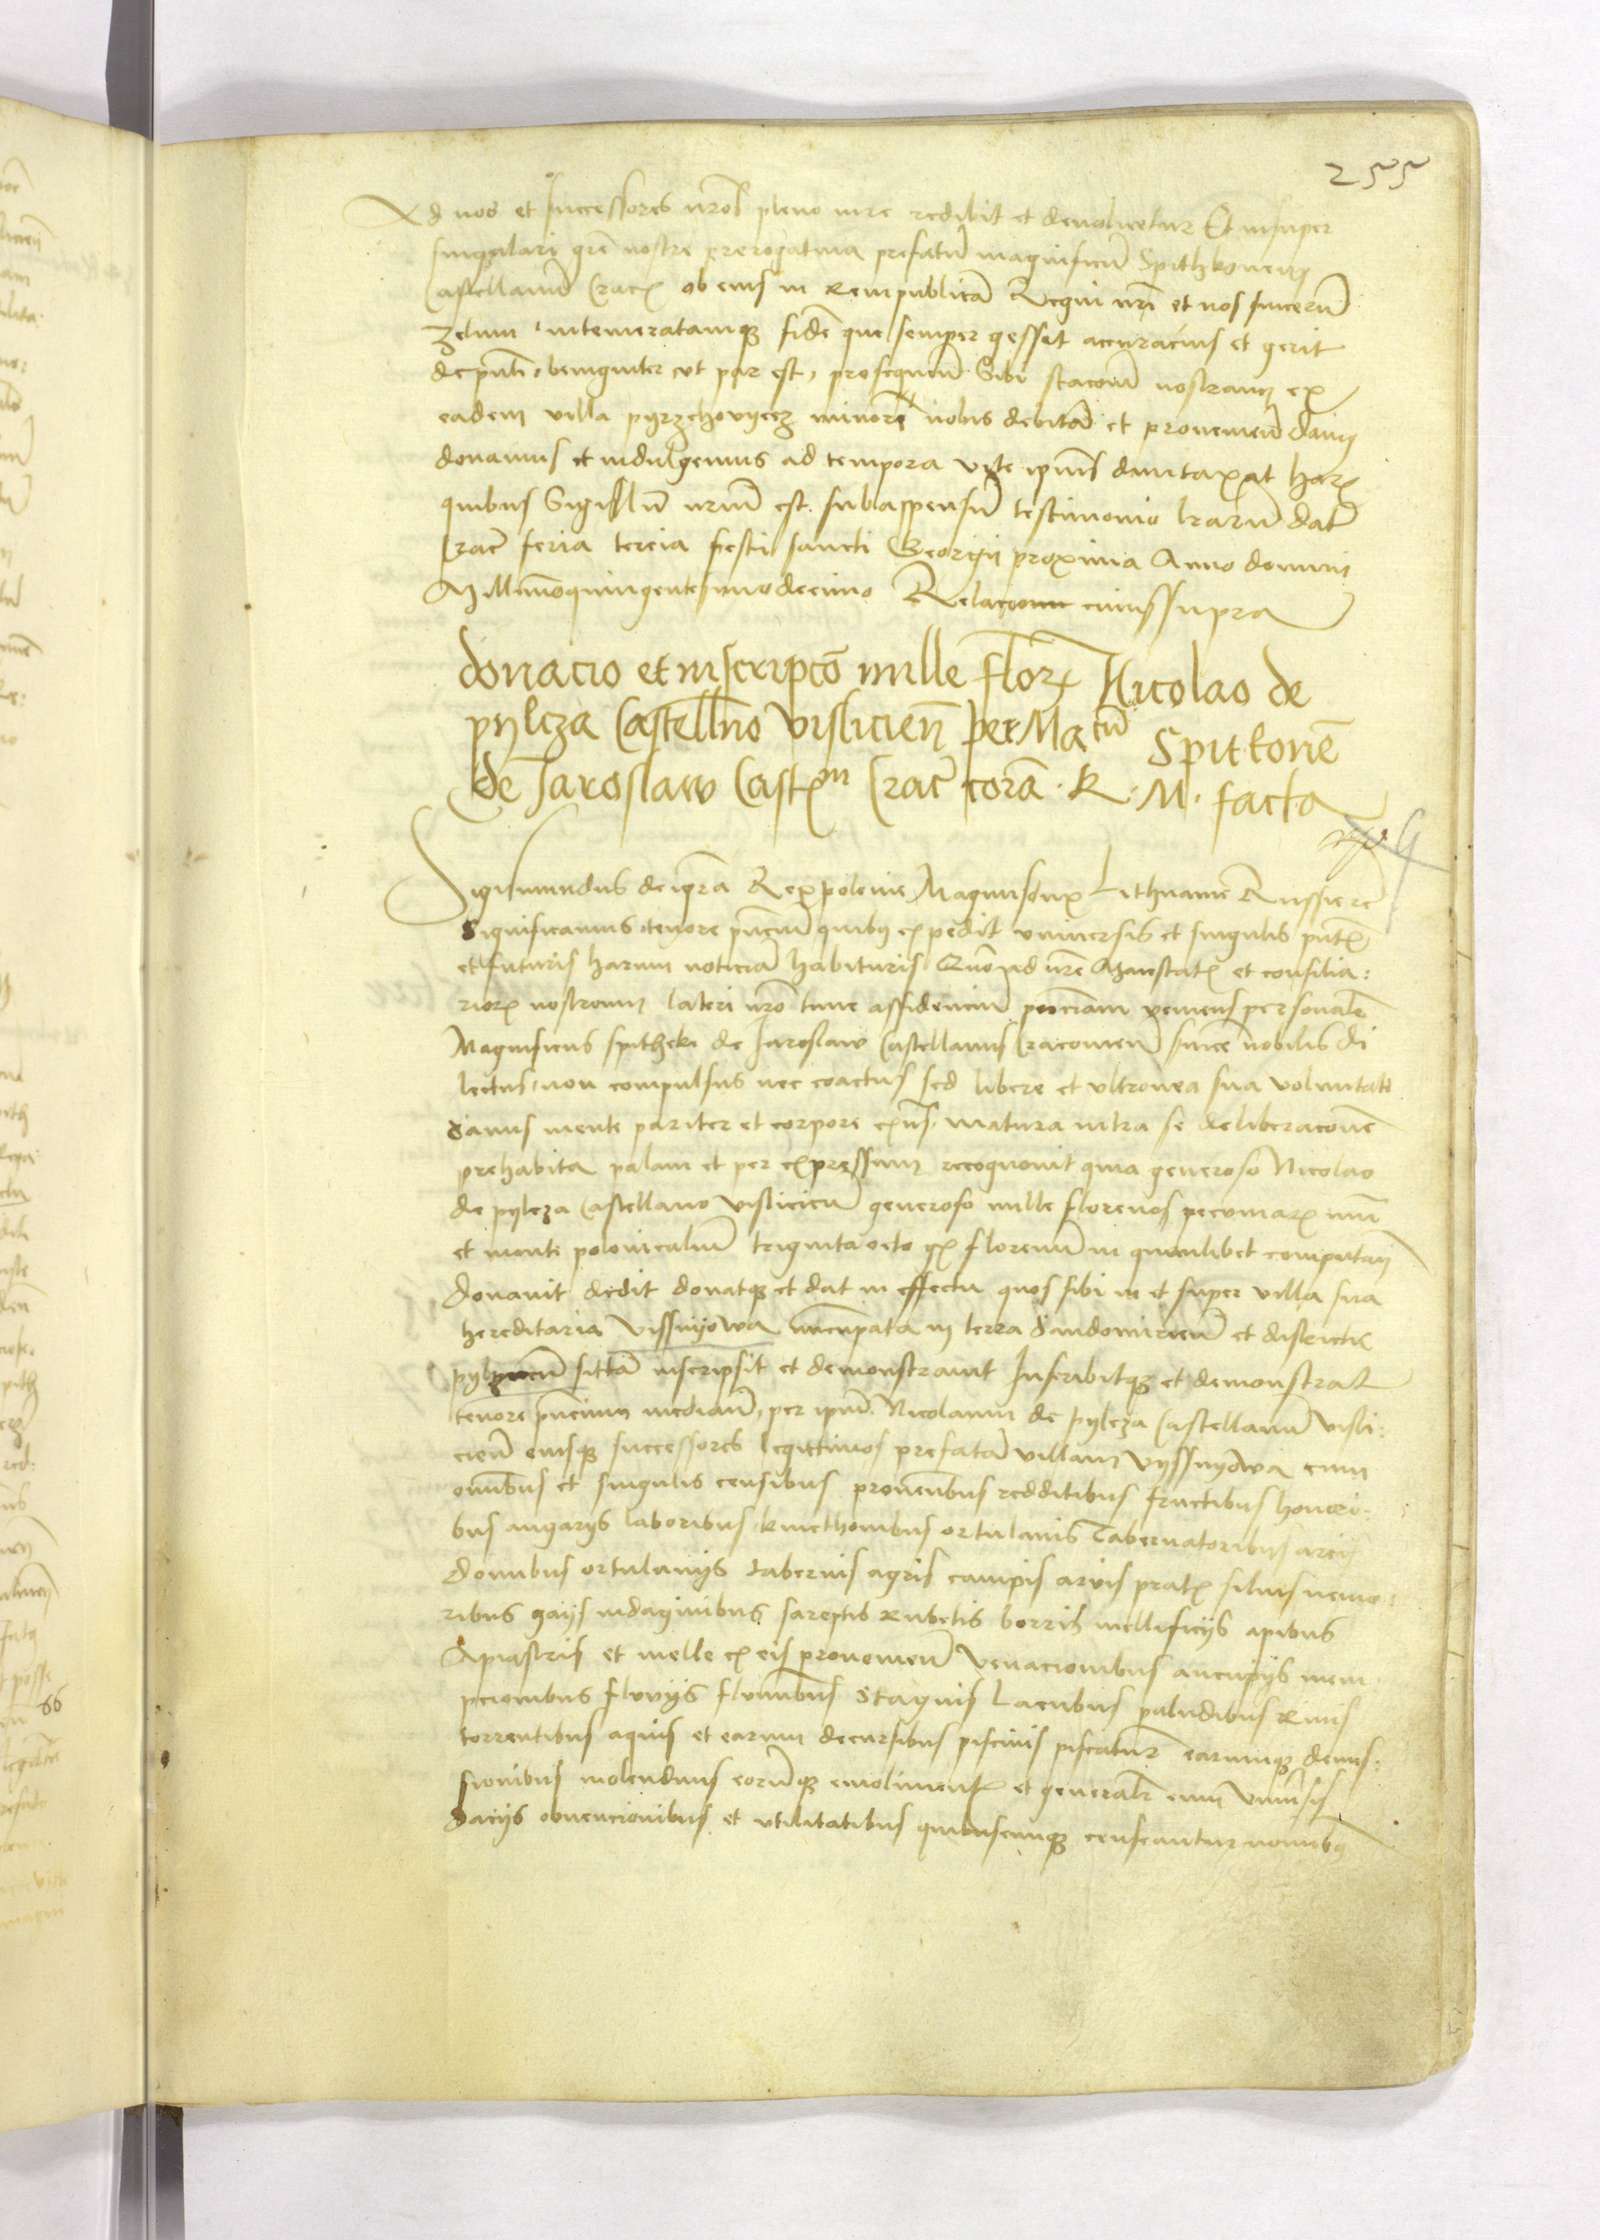 255
Ad nos et successores nros pleno iure redibit et devolvetur Et insuper
singulari grē nostre prerogativa prefatū magnificū Spithkonem
Castellanū Crac̄ ob eius in Rempublicā Regni nri et nos sincerū
zelum intemeratamq; fidē que semper gessit accuracius et gerit
benigniter ut par est, prosequeñ Sibi stacoem nostram ex
eadem villa pyrzchovycz minorē nobis debitā et provenieñ damus
donamus et indulgemus ad tempora vite ipius duntaxat Harz
quibus Sigillū nrum est subappensū testimonio lrarū Dat
Crac̄ feria tercia festi sancti Georgii proxima Anno domini
Millimoquingentesimodecimo Relacione cuiussupra
donacio et inscripcō mille flor̄ Nicolao de
pylcza Castellno Visliciēn per Mag cū Spitkonē
de Jaroslaw Cast m Crac̄ corā R. M. facta
Sigismundus dei gra Rex polonie Magnusdux Lithuanie Russie rc
Significamus tenore pñcium quibus expedit universis et singulis pñt
et futuris harum noticiā habituris Quō ad nrē Maiestat et consilia:
rior nostrorum lateri nro tunc assidencium pñciam veniens personalr
Magnificus spithek de Jaroslaw Castellanus Cracovieñ sincē nobilis di
lectus, non compulsus nec coactus sed libere et ultronea sua voluntate
sanus mente pariter et corpore exñs matura intra se deliberacoē
prehabita palam et per expressum recognovit quia generoso Nicolao
de pylcza Castellano Vislicieñ generoso mille florenos pecuniar num
et monte polonicalium triginta octo gr florenū in quemlibet computan
donavit dedit donatq; et dat in effectu quos sibi in et super villa sua
hereditaria Vissnyowa nuncupata in terra Sandomirieñ et districtu
sittā inscripsit et demonstravit Inscribitq; et demonstrat
tenore pñcium mediañ, per ipm Nicolaum de pylcza Castellanū Visli:
cieñ eiusq; successores legittimos prefatā villam Vyssnyowa cum
omībus et singulis censibus provenibus redditibus fructibus honori:
bus angariis laboribus kmethonibus ortulanis Tabernatoribus areis
domibus ortulaniis tabernis agris campis arvis prat silvis nemo:
ribus gaiis indaginibus sareptis Rubetis borris mellificiis apibus
Apiastris et melle ex eis provenieñ Venacionibus aucupiis
fluviis fluminibus Stagnis Lacubus paludibus Rivis
torrentibus aquis et earum decursibus piscinis piscatur earumq;
sionibus molendinis eorūq; emoliment et generalr cum Univsis
daciis obvencionibus et utilitatibus quibuscumq; censeantur nominibus